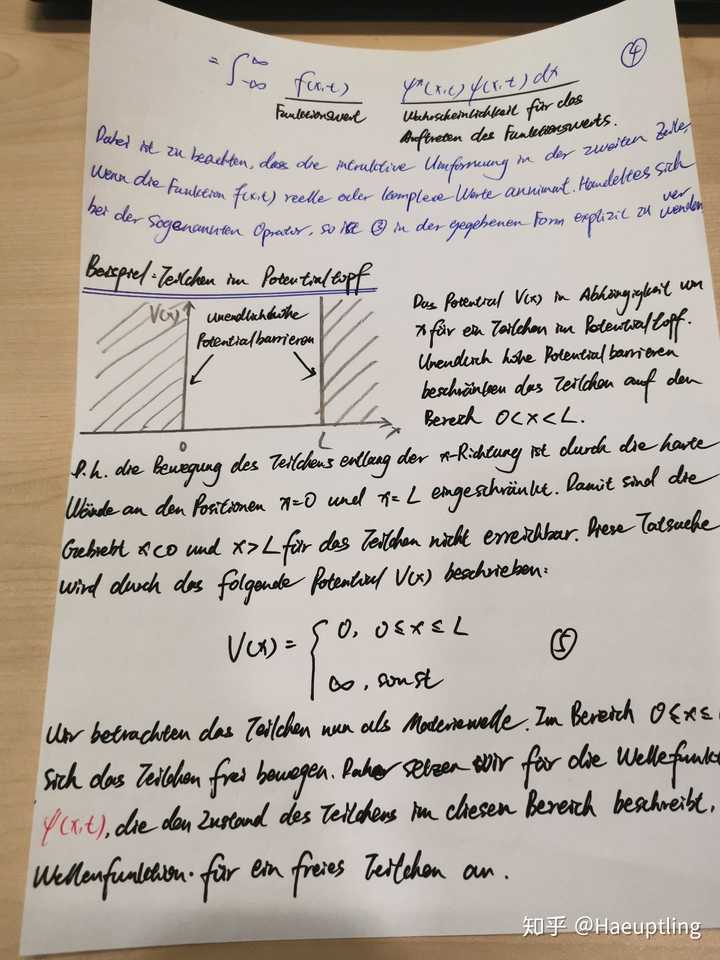 = ∫_{-∞}^{∞} f(x,t) ψ*(x,t) ψ(x,t) dx ④
Funktionswert Wahrscheinlichkeit für das
Auftreten des Funktionswerts.
Dabei ist zu beachten, dass die intuitive Umformung in der zweiten Zeile,
wenn die Funktion f(x,t) reelle oder komplexe Werte annimmt. Handelt es sich
bei der sogenannten Oprator, so ist ③ in der gegebenen Form explizit zu ver
wenden
Beispiel: Teilchen im Potentialtopf
V(x)
unendlich hohe
Potentialbarrieren
0 L x
Das Potential V(x) in Abhängigkeit von
x für ein Teilchen im Potentialtopf.
Unendlich hohe Potentialbarrieren
beschränken das Teilchen auf den
Bereich 0<x<L.
D.h. die Bewegung des Teilchens entlang der x-Richtung ist durch die harte
Wände an den Positionen x=0 und x=L eingeschränkt. Damit sind die
x<0 und x>L für das Teilchen nicht erreichbar. Diese Tatsache
wird durch das folgende Potential V(x) beschrieben:
V(x) = { 0, 0≤x≤L ⑤
∞, sonst
Wir betrachten das Teilchen nun als Materiewelle. Im Bereich 0≤x≤
sich das Teilchen frei bewegen. Daher setzen wir für die Wellefunkt
ψ(x,t), die den Zustand des Teilchens im diesen Bereich beschreibt,
Wellenfunktion für ein freies Teilchen an.
知乎 @Haeuptling